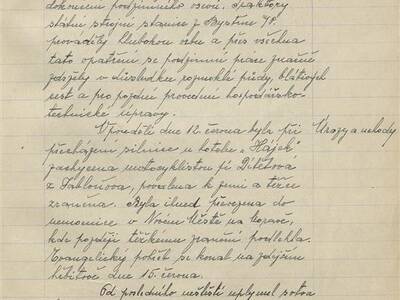 dokončení podzimního osevu. Traktory
státní strojní stanice z Bystřice n/P.
prováděly hlubokou orbu a přes všechna
tato opatření se podzimní práce značně
zdržely v důsledku rozmoklé půdy, blátivých
cest a pro pozdní provedení hospodářsko-
technické úpravy.
V pondělí dne 12. června byla při
Úrazy a nehody
přecházení silnice u hotelu "Hájek"
zachycena motocyklistou pí Dítětová
z Jabloňova, povalena k zemi a těžce
zraněna. Byla ihned převezena do
nemocnice v Novém Městě na Moravě,
kde později těžkému zranění podlehla.
Evangelický pohřeb se konal na zdejším
hřbitově dne 15. června.
Od posledního neštěstí uplynul sotva